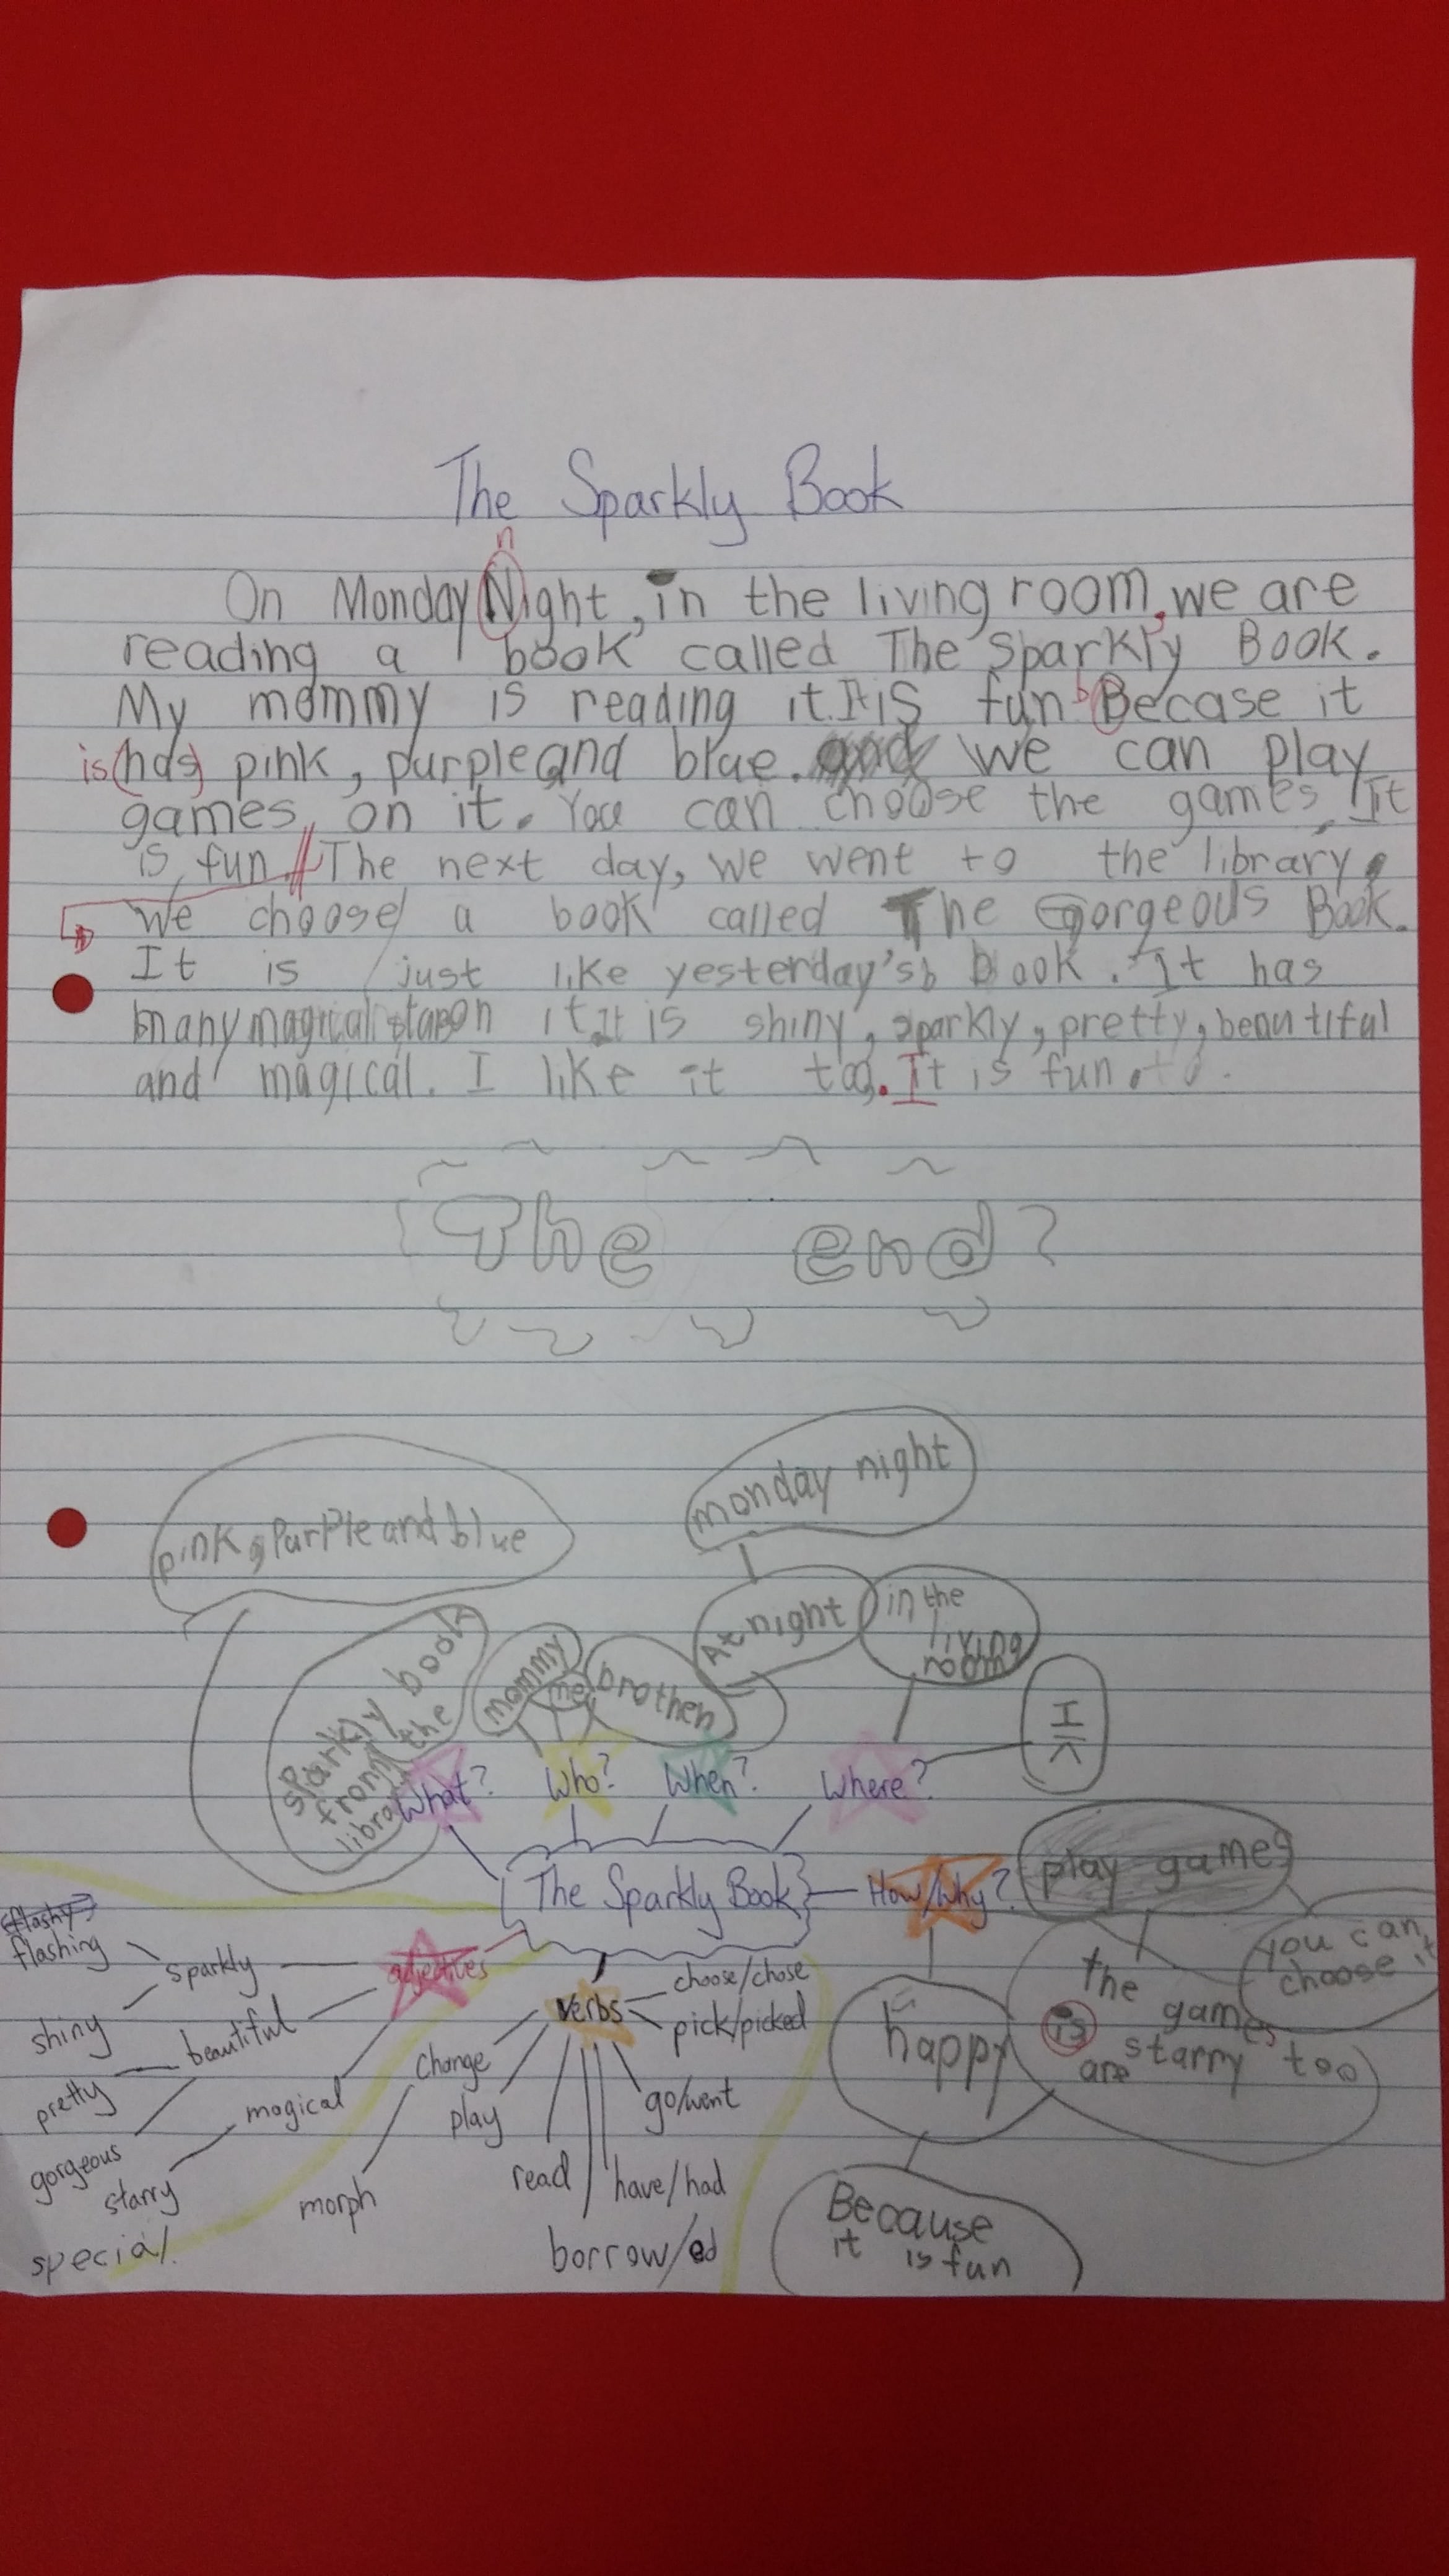 The Sparkly Book
n
On Monday Night, in the living room, we are
reading a book called The Sparkly Book.
My mommy is reading it. It is fun b Becase it
is (has) pink, purple and blue. and we can play
games on it. You can choose the games. It
is fun. // The next day, we went to the library.
We choose a book called The Gorgeous Book.
It is just like yesterday's book. It has
many magical star on it. It is shiny, sparkly, pretty, beautiful
and magical. I like it too. It is fun. to.
The end
monday night
pink, Purple and blue
At night
in the
living
room
sparkly book
from the
library
mommy
me
brother
HK
What? Who? When? Where?
play games
The Sparkly Book
How/Why?
you can
choose it
flashy
flashing
sparkly
adjectives
shiny
beautiful
pretty
magical
gorgeous
starry
special
verbs
choose/chose
pick/picked
change
play
go/went
morph
read
have/had
borrow/ed
happy
the games
is
are starry too
Because
it is fun